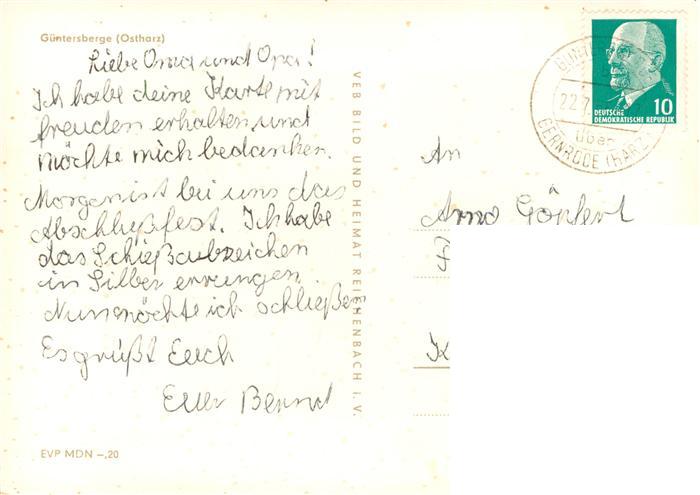 Güntersberge (Ostharz)
Liebe Oma und Opa!
Ich habe deine Karte mit
freuden erhalten und
möchte mich bedanken.
Morgen ist bei uns das
Abschlußfest. Ich habe
das Schießabzeichen
in Silber errungen.
Nun möchte ich schließen
Es grüßt Euch
Euer Bernd
EVP MDN –,20
VEB BILD UND HEIMAT REICHENBACH I. V.
DEUTSCHE
DEMOKRATISCHE REPUBLIK
10
22.7.
über
GERNRODE (HARZ)
An
Arno